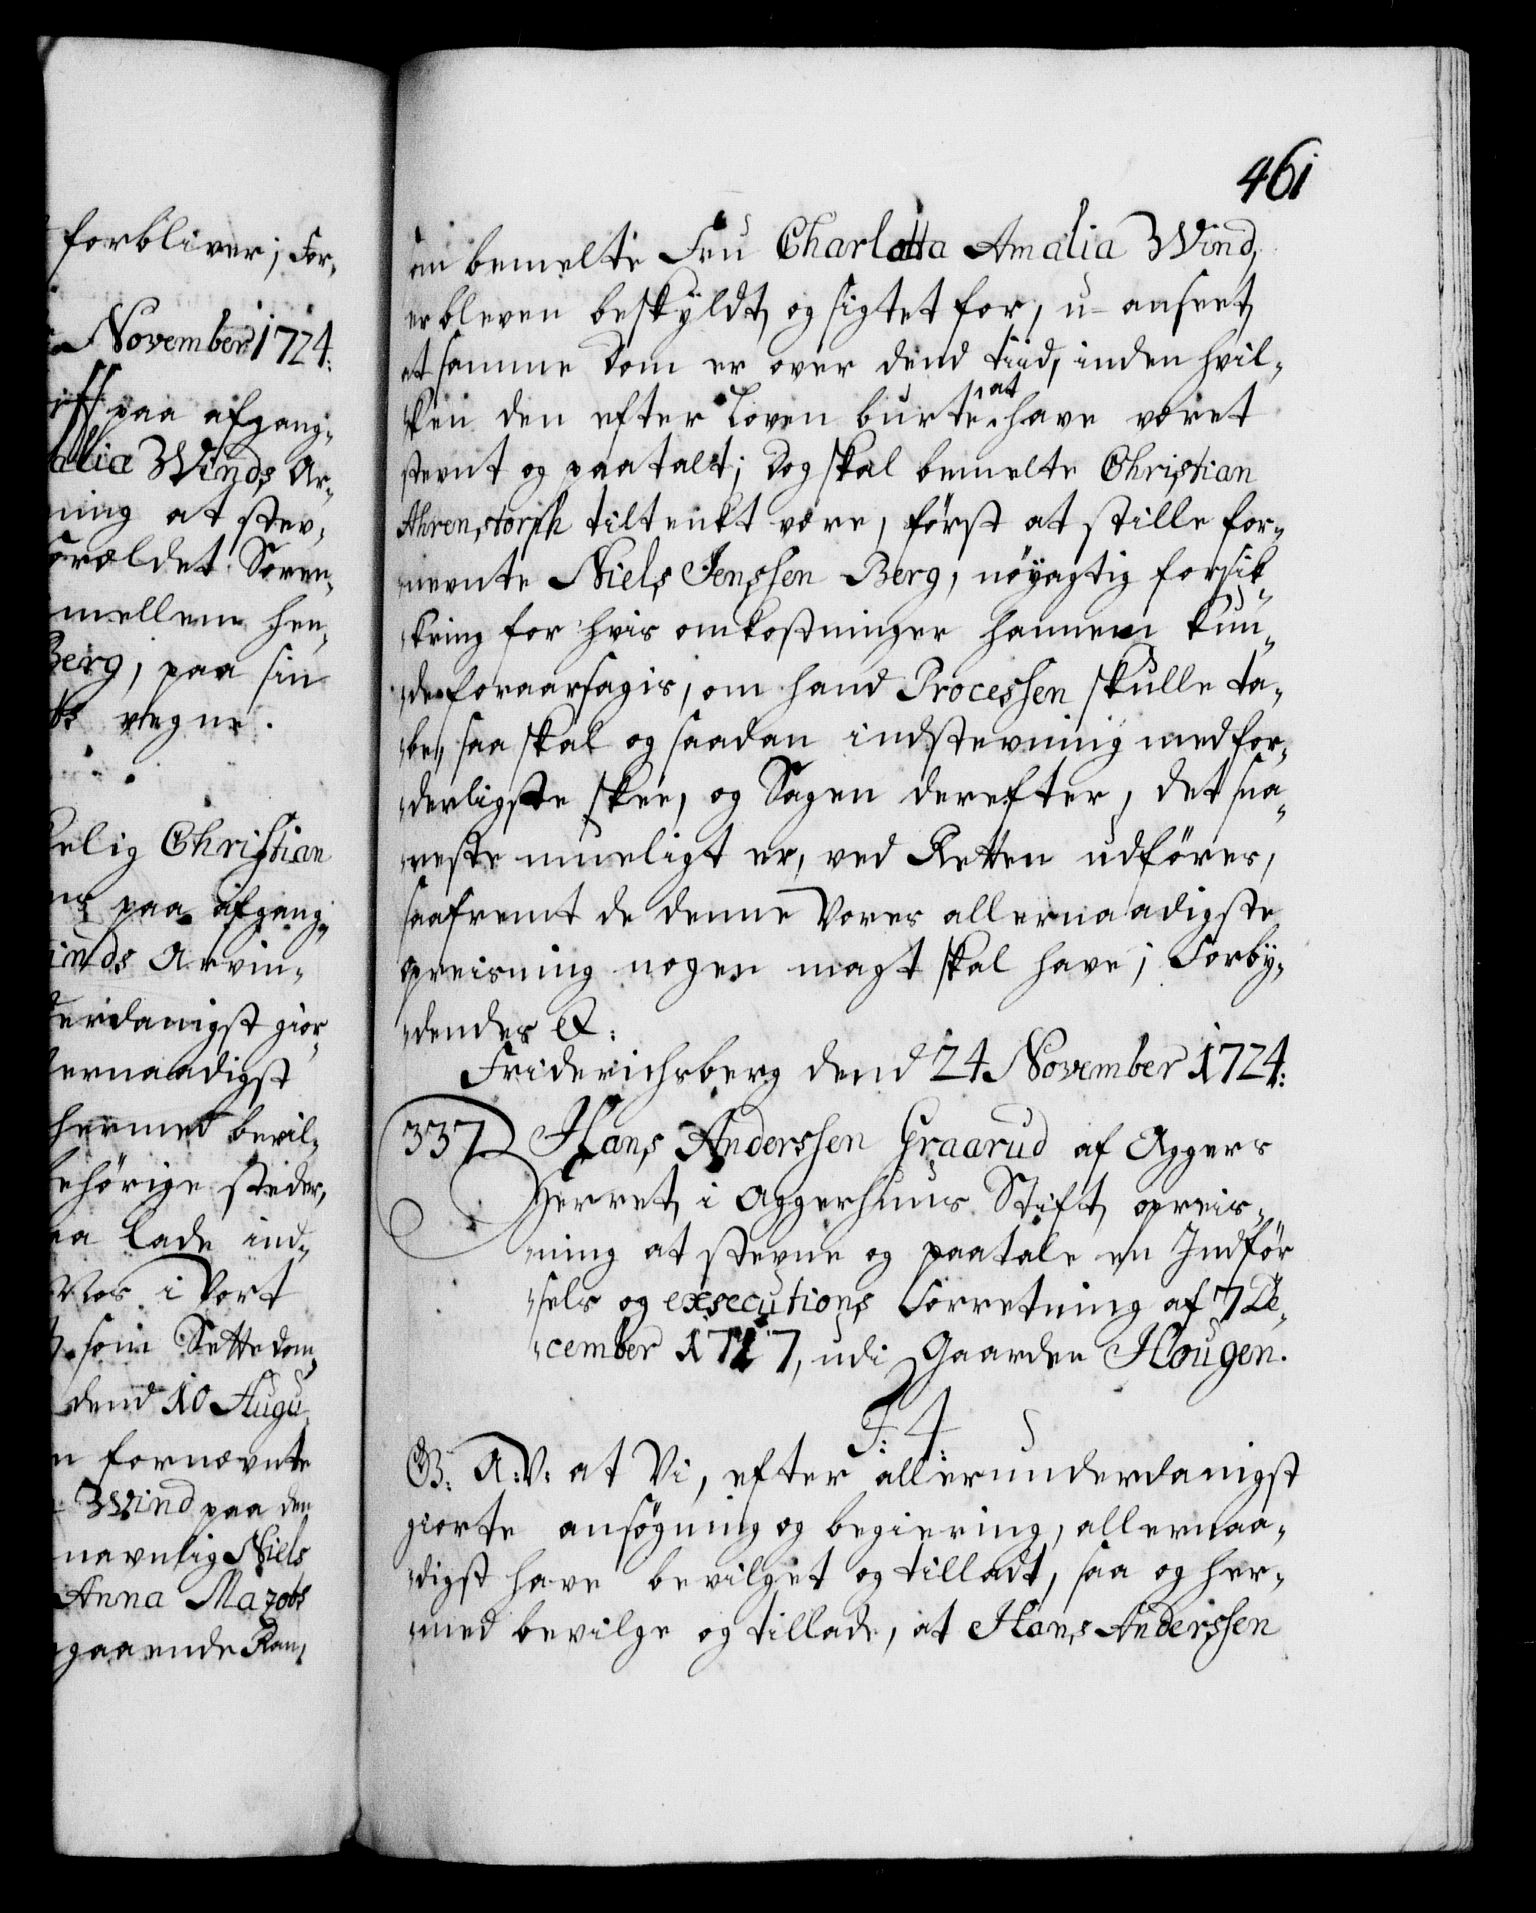 forbliver; For-
November 1724:
riff paa afgang-
alia Winds Ar-
ning at stev-
forældet Soren-
mellem hen-
Berg, paa sin
vegne.
selig Christian
paa afgang-
inds Arvin-
erdanigst gior-
ernaadigst
hermed bevil-
behörige steder,
aa lade ind-
Vos i Vort
som Sættedom-
dend 10 Augu-
n fornævnte
Wind paa den
navnlig Niels
Anna Ma
gaaende Ran-
461
en bemelte Fru Charlotta Amalia Wind,
er bleven beskyldt og sigtet for, u-anseet,
at samme Dom er over dend tiid, inden hvil-
ken den efter Loven burte at have været
stevnt og paatalt; Dog skal bemelte Christian
Ahrenstorph tiltenkt være, först at stille for-
nevnte Niels Jenssen Berg, nöyagtig forsik-
kring for hvis omkostninger hannem kun-
de foraarsagis, om hand Processen skulle ta-
be, saa skal og saadan indstevning med for-
derligste skee, og Sagen derefter, det sna-
reste mueligt er, ved Retten udföres,
saafremt de denne Vores allernaadigste
opreisning nogen magt skal have; Forby-
dendes &:
Friderichsberg dend 24 November 1724:
337 Hans Anderssen Graarud af Aggers
Herret, i Aggershuus Stift, opreis-
ning at stevne og paatale en Indför
sels og exsecutions Forretning af 7 De-
cember 1717, udi Gaarden Hougen.
F: 4.
G: A: V: at Vi, efter allerunderdanigst
giorte ansögning og begiering, allernaa-
digst have bevilget og tilladt, saa og her-
med bevilge og tillade, at Hans Anderssen